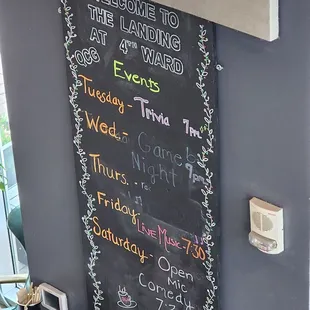 WELCOME TO
THE LANDING
AT 4TH WARD
Events
Tuesday - Trivia 7pm
Wed. - Game Night 7pm
Thurs. -
Friday - Live Music - 7:30
Saturday - Open
Mic
Comedy